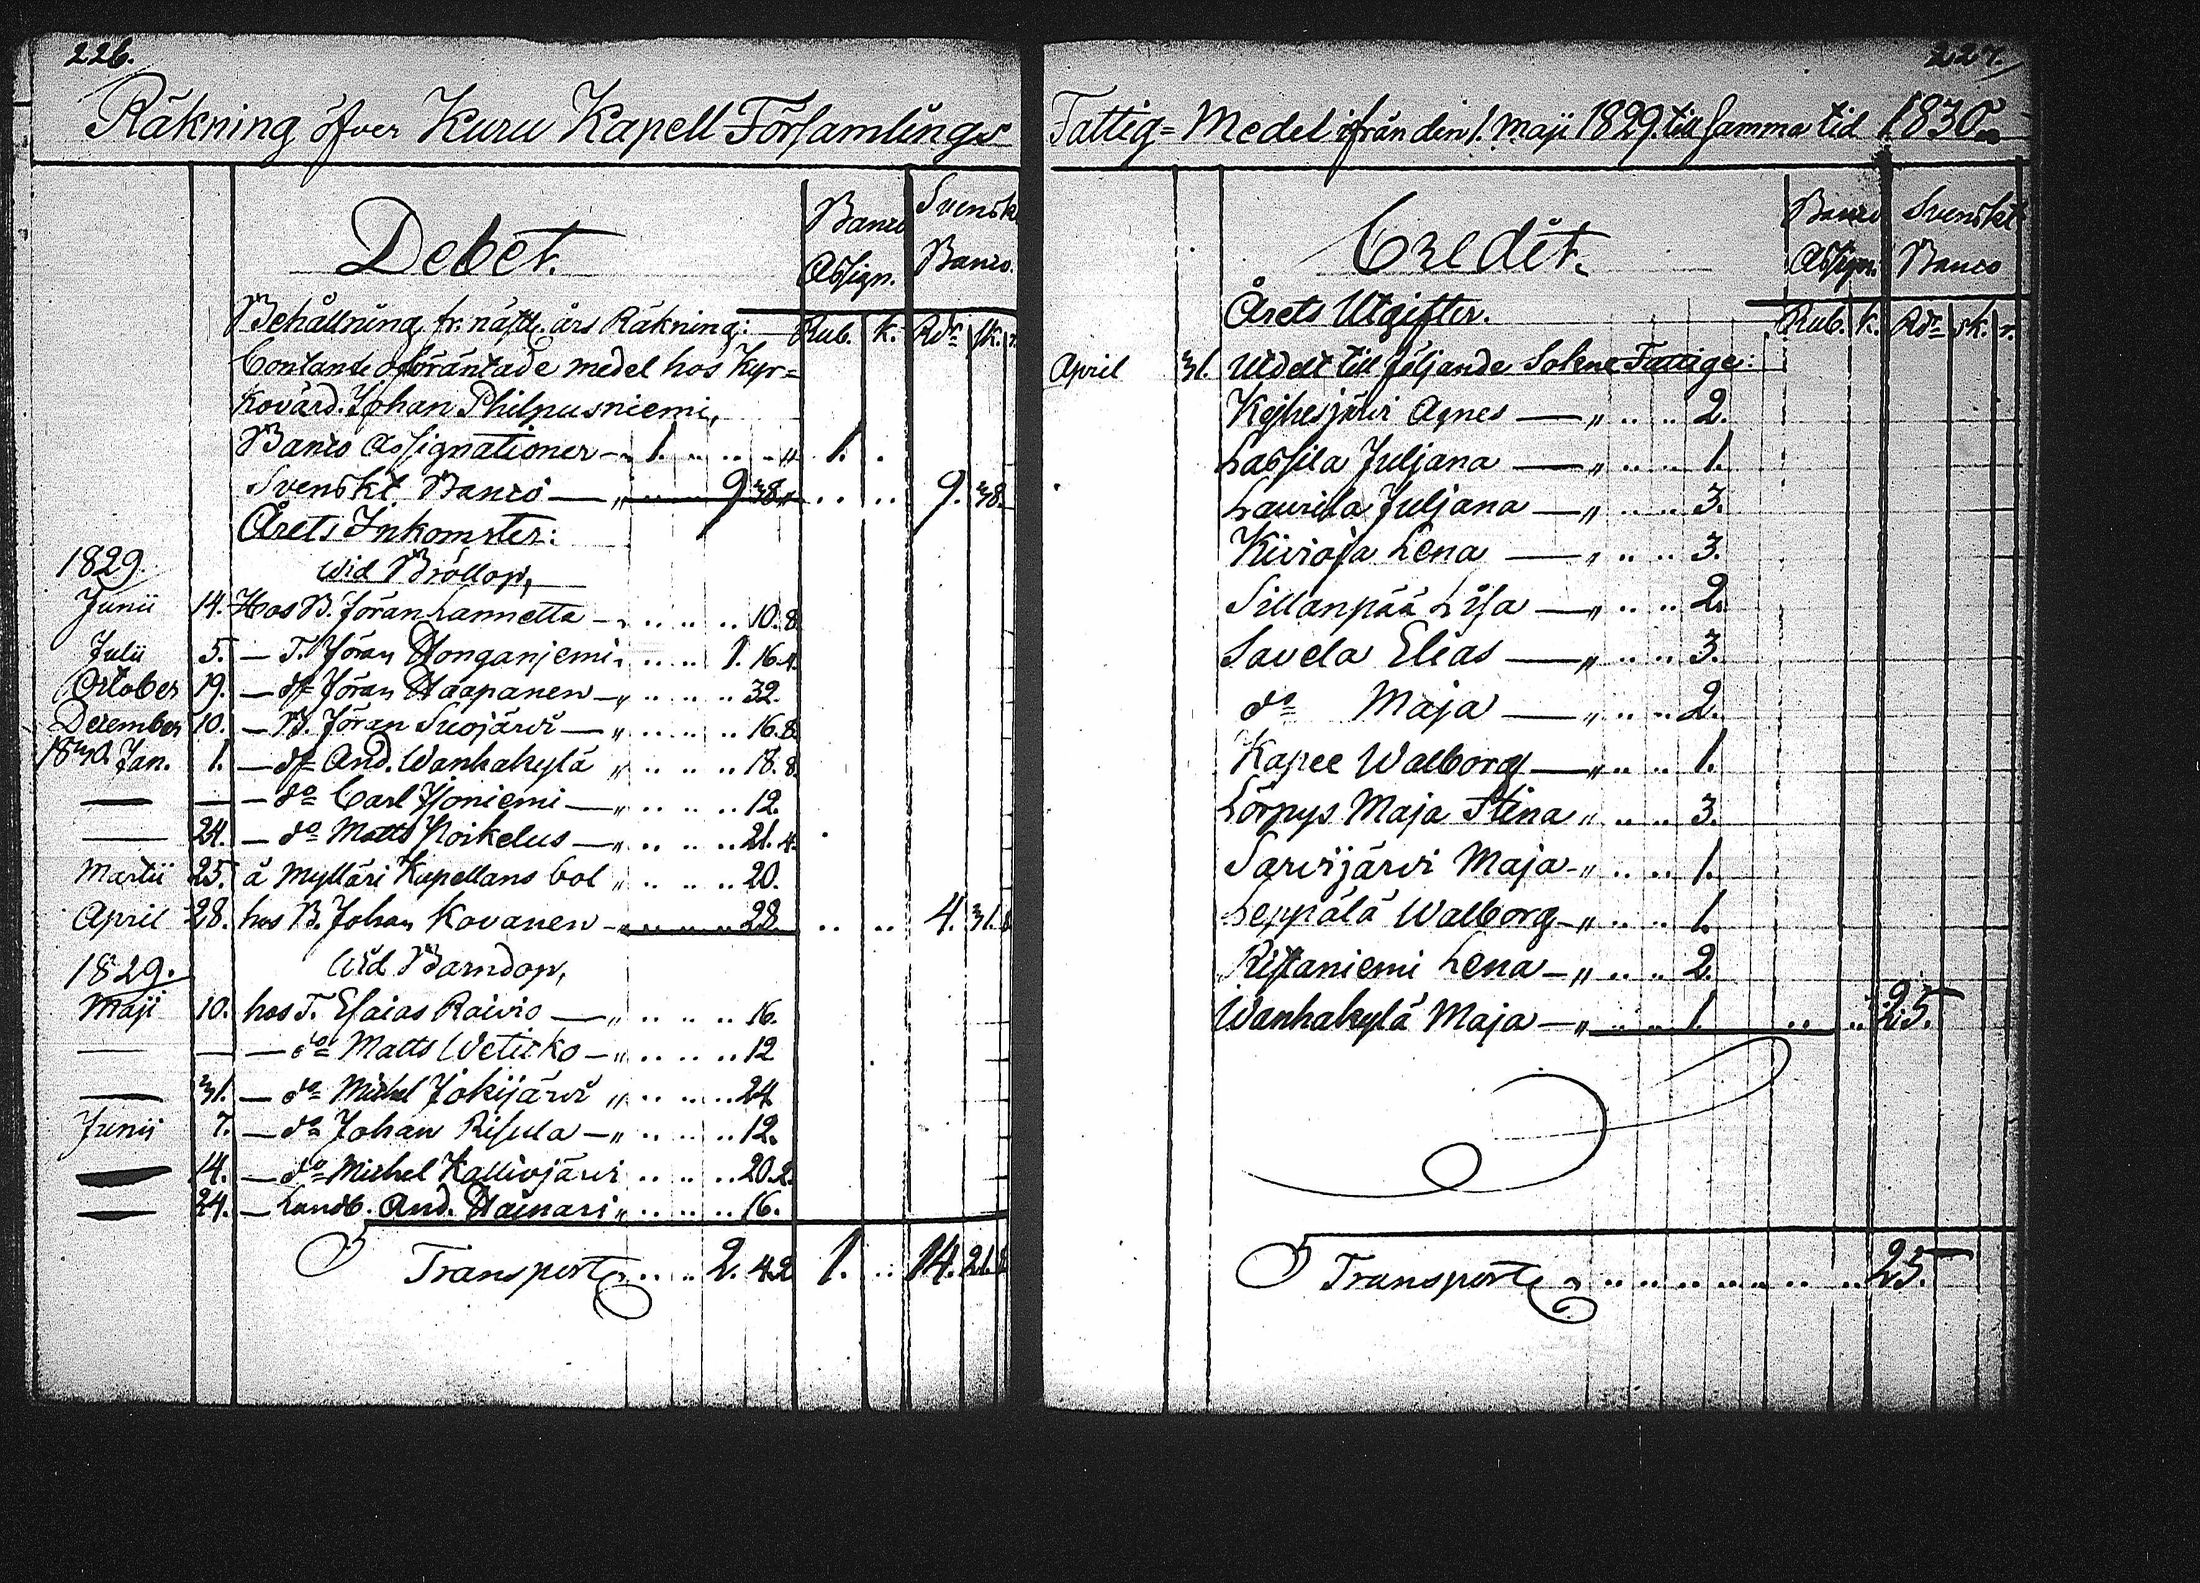 226.
Räkning öfver Kuru Kapell Församlings
Debet.
Banco Assign.
Svenskt Banco.
Behållning fr: näStl. års Räkning:
Rub. k. Rdr sk. r.
Contante oföräntade medel hos Kyr=
kovärd. Johan Philpusniemi,
Banco Assignationer — „ 1. .. .. .. „ 1. .
Svenskt Banco — „ .. .. 9 38. „ .. .. 9. 38.
Årets Inkomster:
1829. wid Bröllop,
Junii 14. Hos B. Jöran Lannetta — „ .. .. .. 10. 8.
Julii 5. — T. Jöran Honganjemi „ .. .. 1. 16. 4.
October 19. — do Jöran Haapanen — „ .. .. .. 32.
December 10. — B. Jöran Suojärvi — „ .. .. .. 16. 8.
1830. Jan. 1. — do And. Wanhakylä „ .. .. .. 18. 8.
— — — do Carl Isoniemi — „ .. .. .. 12.
— 24. — do Matts Poikelus — „ .. .. .. 21. 4.
Martii 25. å Mylläri Kapellans bol „ .. .. .. 20.
April 28. hos B. Johan Kovanen — „ .. .. .. 28. .. .. 4. 31. 8
1829. Wid Barndop,
Maji 10. hos T. Esaias Raivio — „ .. .. .. 16.
— — — do Matts Weticko — „ .. .. .. 12
— 31. — do Michel Jokijärvi „ .. .. .. 24
Junii 7. — do Johan Risula — „ .. .. .. 12.
— 14. — do Michel Kalliojärvi .. .. .. 20. 2.
— 24. — Landb. And. Hainari „ .. .. .. 16.
Transport „ .. .. 2. 42 1. .. 14. 21. 8
227.
Fattig=Medel ifrån den 1. Maji 1829. till samma tid 1830.
Credit.
Banco Assign.
Svenskt Banco
Årets Utgifter.
Rub. k. Rdr sk. r.
April 31. Utdelt till följande Sokne Fattige:
Keihesjärvi Agnes — „ .. .. 2.
Lassila Juljana — „ .. .. 1.
Laurila Juljana — „ .. .. 3.
Kivioja Lena — „ .. .. 3.
Sillanpää Lisa — „ .. .. 2.
Savela Elias — „ .. .. 3.
do Maja — „ .. .. 2.
Kapee Walborg — „ .. .. 1.
Lörpys Maja Stina „ .. .. 3.
Sarvijärvi Maja — „ .. .. 1.
Leppälä Walborg — „ .. .. 1.
Ristaniemi Lena — „ .. .. 2.
Wanhakylä Maja — „ .. .. 1. .. .. 25.
Transport „ .. .. .. .. .. .. 25.